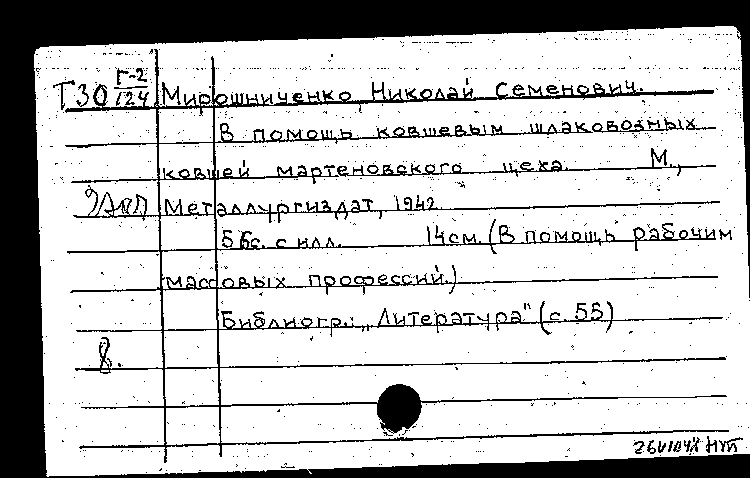 Т30 Г-2/124 Мирошниченко, Николай Семенович.
В помощь ковшевым шлаковозных
ковшей мартеновского цеха. М.,
Металлургиздат, 1942
56с. с илл. 14см. (В помощь рабочим
массовых профессий.)
Библиогр.: „Литература" (с. 55)
8.